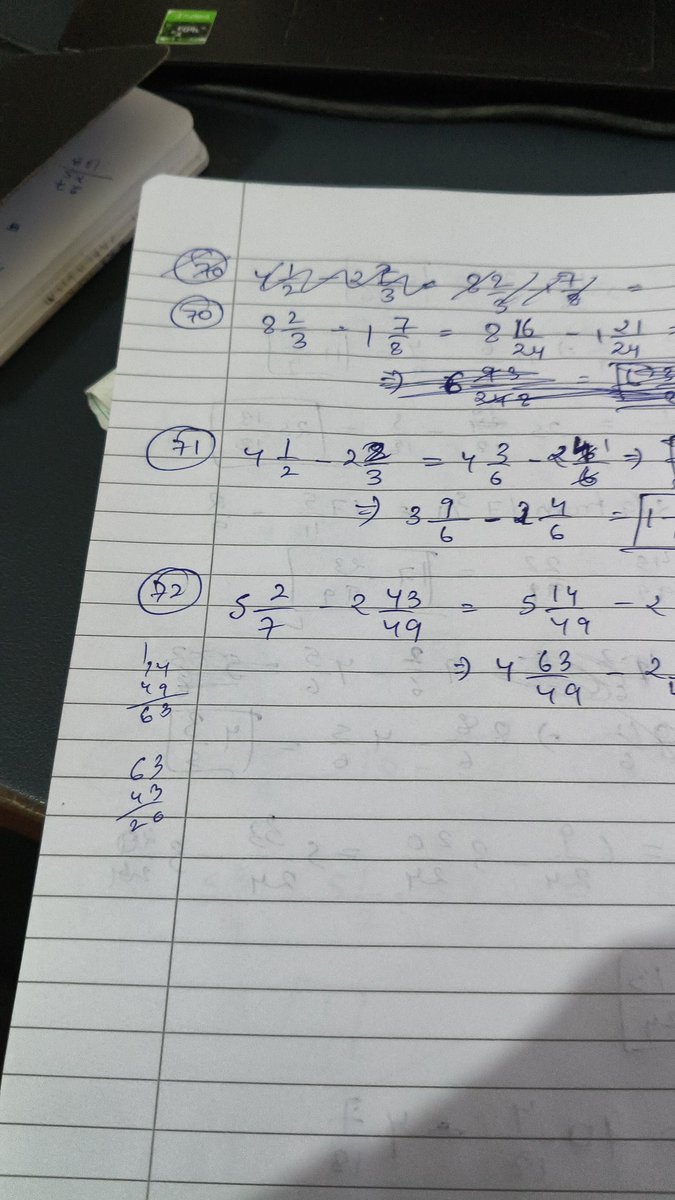 70 4 1/2 - 2 2/3 = 8 2/3 - 1 7/8 =
70 8 2/3 - 1 7/8 = 8 16/24 - 1 21/24 =
⇒ 6
71 4 1/2 - 2 2/3 = 4 3/6 - 2 ⇒
⇒ 3 9/6 - 2 4/6 = 1
72 5 2/7 - 2 43/49 = 5 14/49 - 2
⇒ 4 63/49 - 2
1
14
49
63
63
43
20